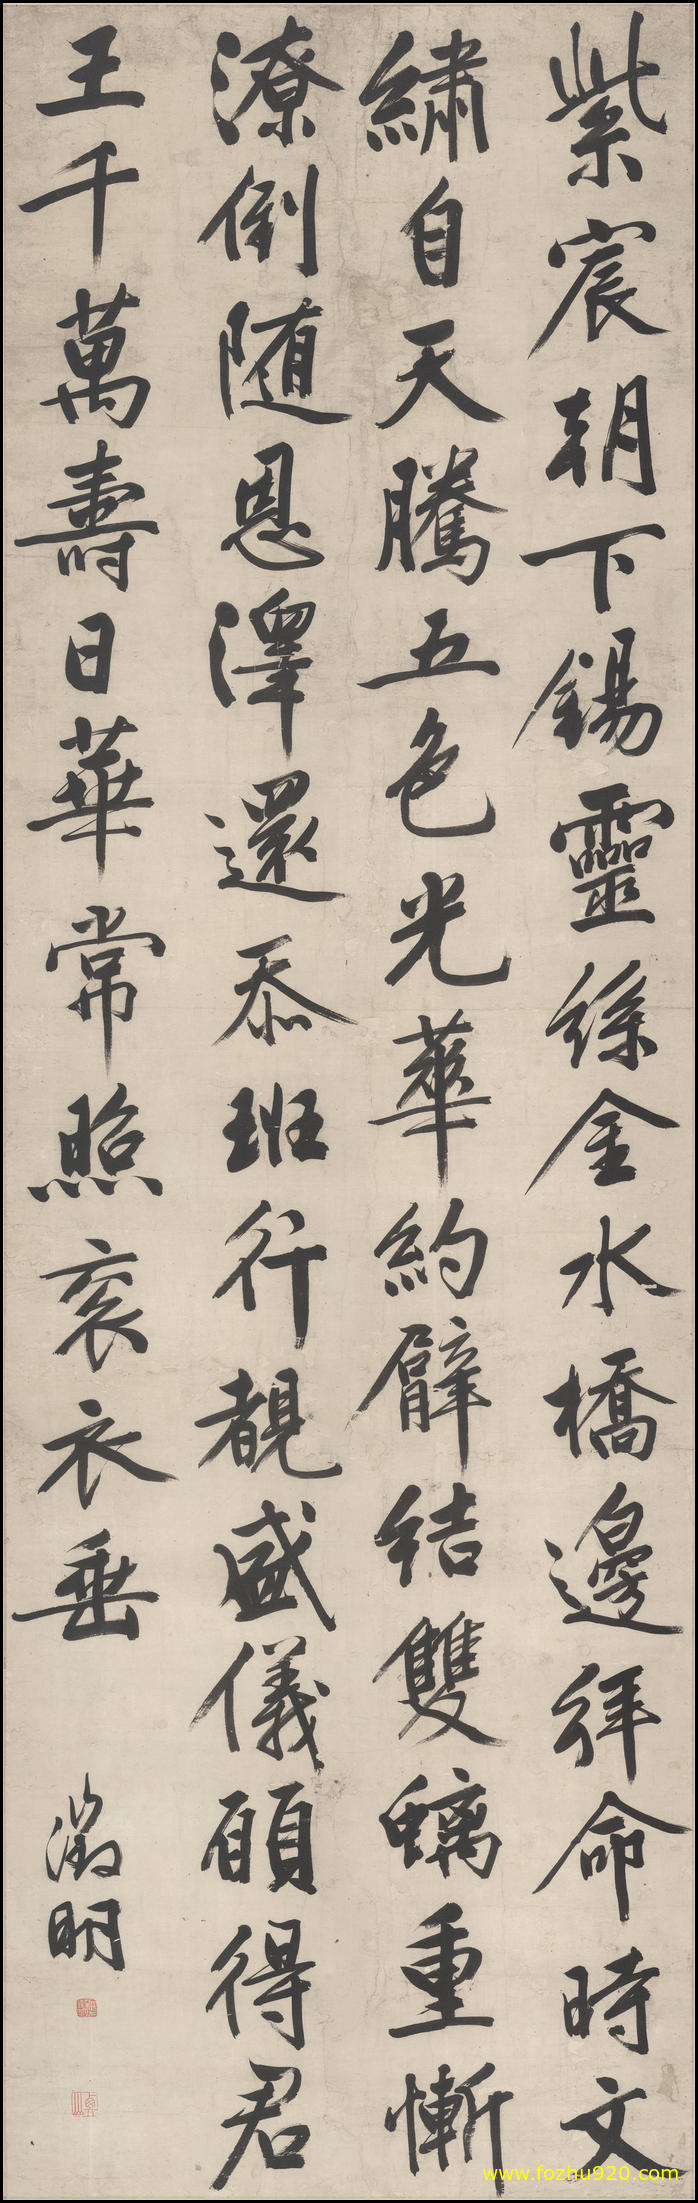 紫宸朝下錫靈絲金水橋邊拜命時文
繡自天騰五色光華約臂結雙螭重慚
潦倒随恩澤還忝班行覩盛儀願得君
王千萬壽日華常照衮衣垂
徵明
www.fozhu920.com